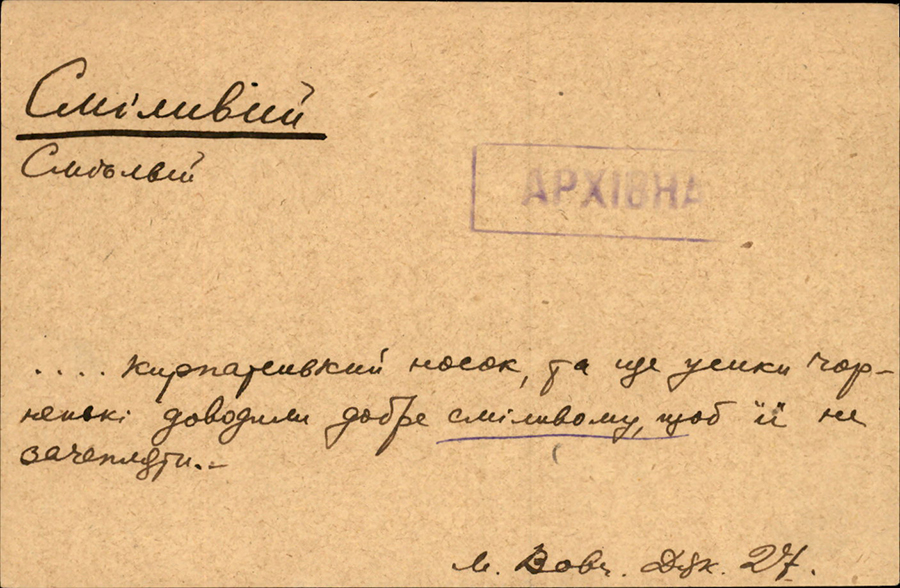 Сміливий
Смѣлый
АРХІВНА
.... кирпатенький носок, та ще усики чор-
ненькі доводили добре сміливому, щоб її не
зачепляти..
М. Вовч. Дяк. 27.